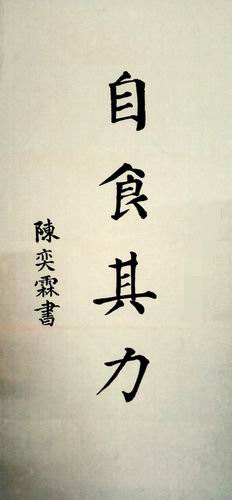 自食其力
陳奕霖書